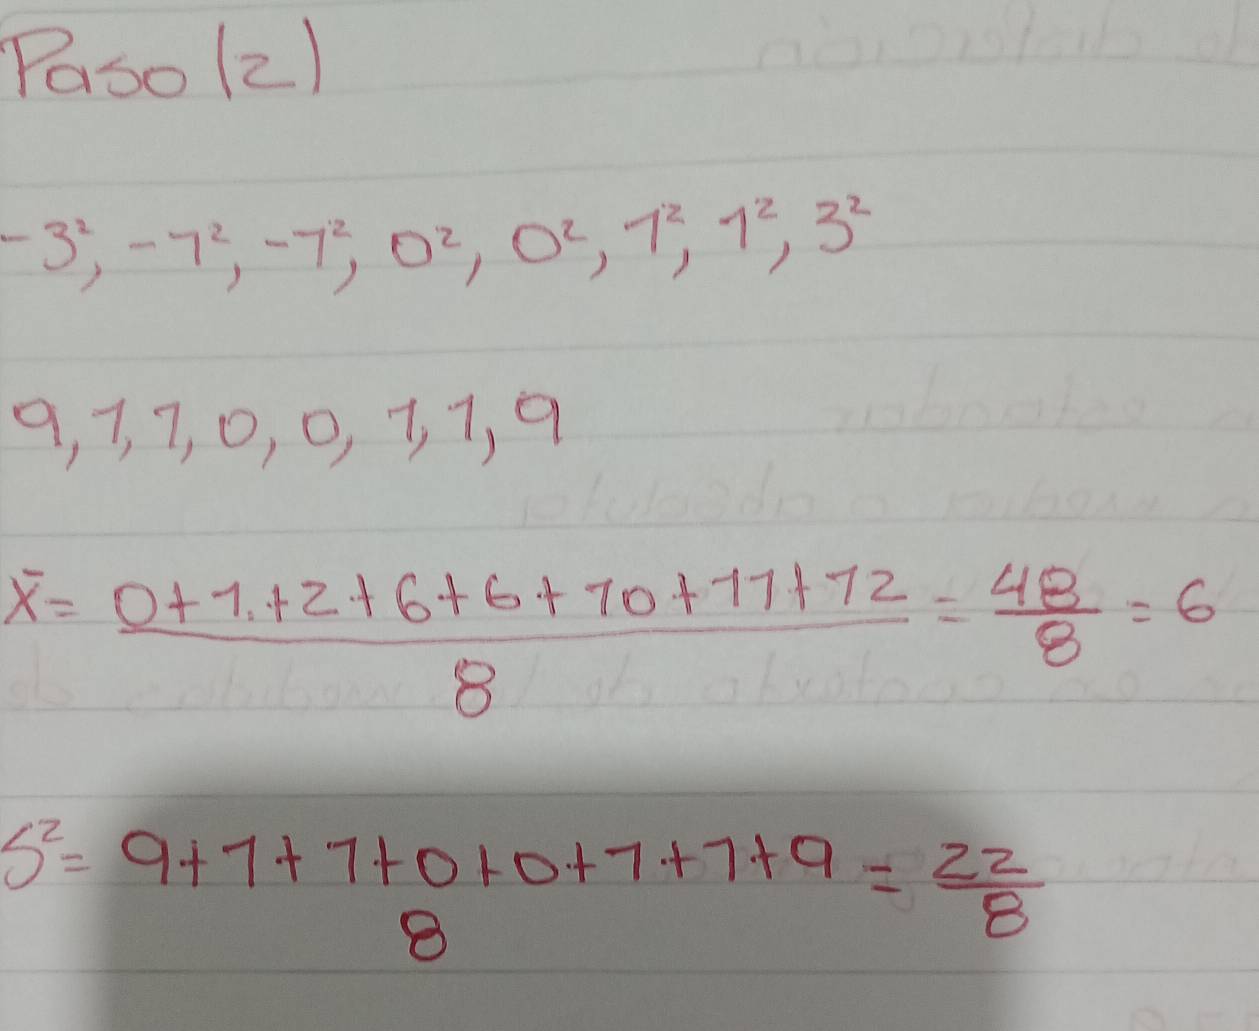 Paso (2)
-3², -1², -1², 0², 0², 1², 1², 3²
9, 1, 1, 0, 0, 1, 1, 9
x̄ = 0+1.+2+6+6+10+11+12 = 48 = 6
8 8
S² = 9+1+1+0+0+1+1+9 = 22
8 8